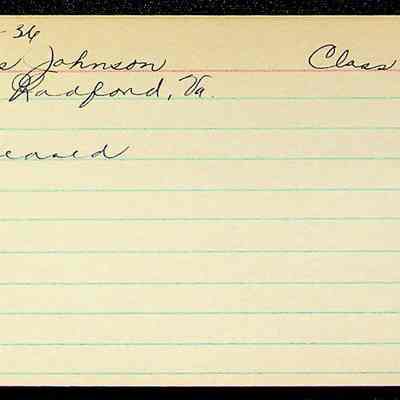 - 36
s Johnson Class
Radford, Va.
eased